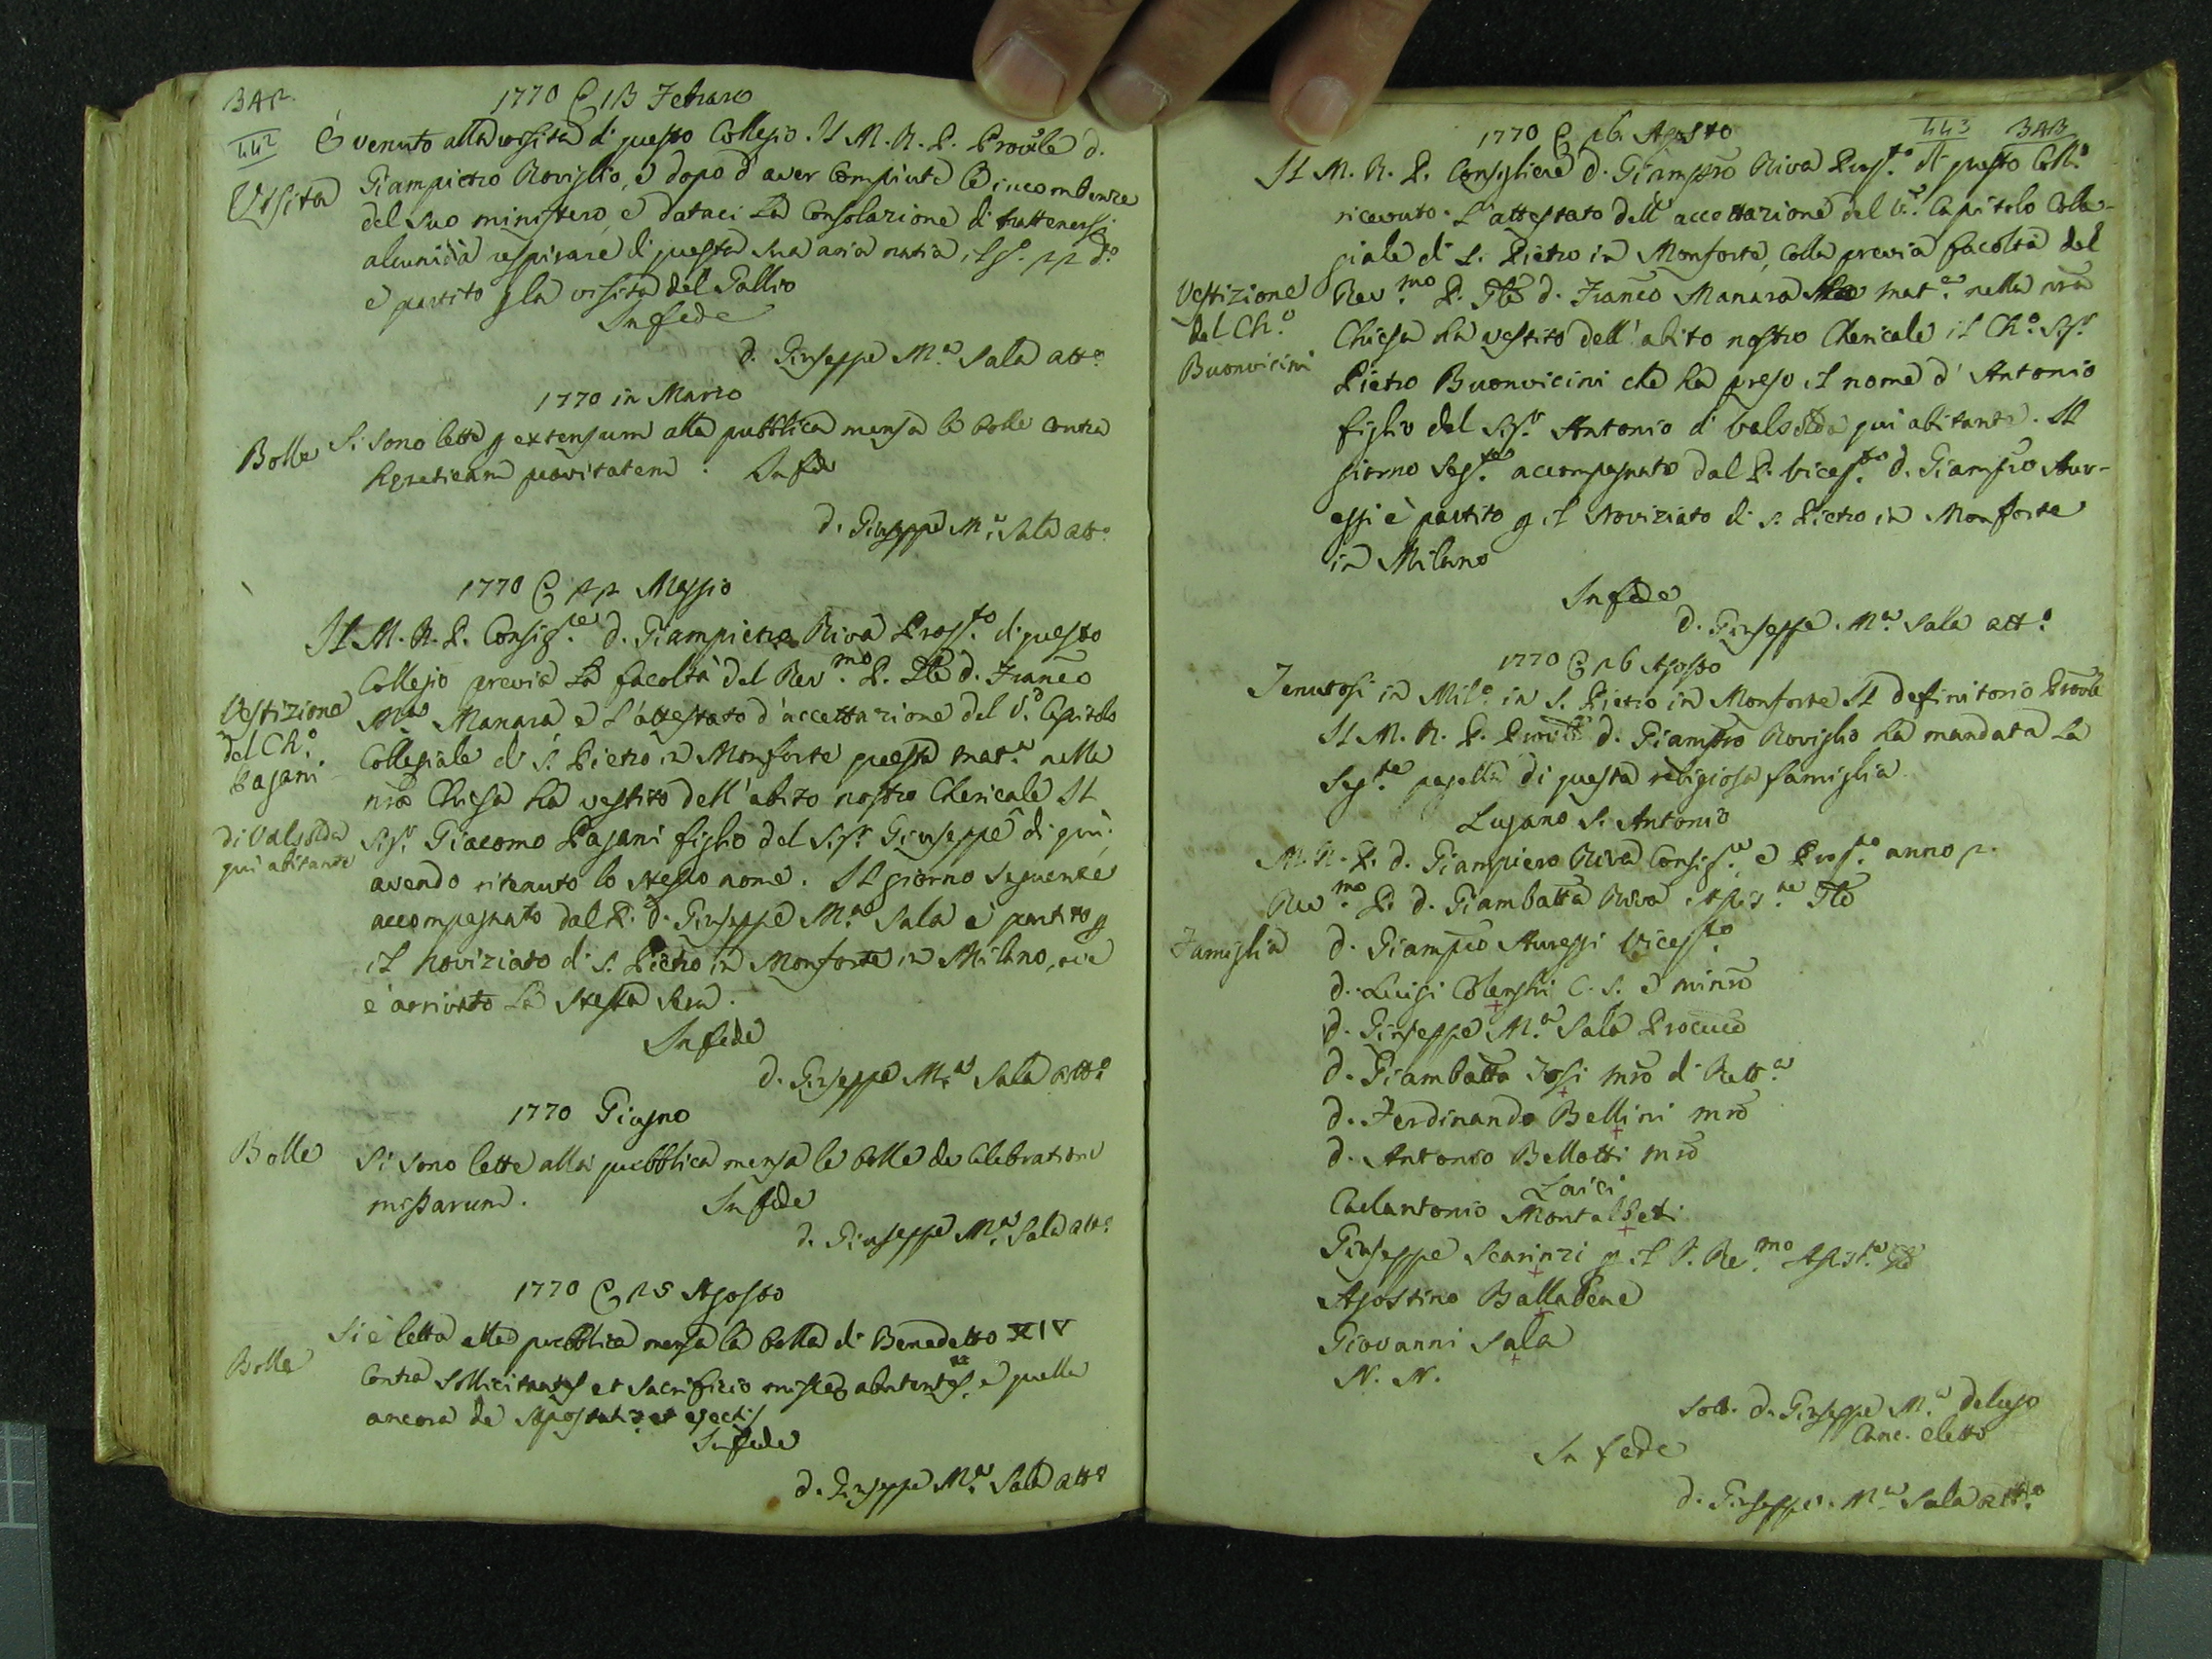 342.
442
1770 13 Febraro
Visita
È venuto alla visita di questo Collegio Il M. R. P. Prov.le d.
Giampietro Roviglio, e dopo d'aver compiute le incombenze
del suo ministero, e dataci la consolazione di trattenersi
a respirare di questa sua aria natia, il
è partito la visita del Gallio
In fede
d. Giuseppe M.a Sala att.o
1770 in Marzo
Bolle
Si sono lette extensum alla pubblica mensa le bolle contra
hereticam pravitatem. In fede
d. Giuseppe M.a Sala att.o
1770 22 Maggio
Il M. R. P. Consig.re d. Giampietro Riva Prep.to di questo
Collegio previa la facoltà del Rev.mo P. Gle d. Franco
Vestizione
del Ch.o
Pagani
di Valsolda
qui abitante
M.a Manara, e l'attestato d'accettazione del V. Capitolo
Collegiale di S. Pietro in Monforte questa mat.a nella
nra Chiesa ha vestito dell'abito nostro Chericale Il
Sig.r Giacomo Pagani figlio del Sig.r Giuseppe di quì,
avendo ritenuto lo stesso nome. Il giorno seguente
accompagnato dal P. d. Giuseppe M.a Sala è partito
il noviziato di S. Pietro in Monforte in Milano, ove
è arrivato la stessa sera.
In fede
d. Giuseppe M.a Sala att.o
1770 Giugno
Bolle
Si sono lette alla pubblica mensa le bolle de Celebratione
missarum. In fede
d. Giuseppe M.a Sala att.o
1770 25 Agosto
Bolle
Si è letta alla pubblica mensa la bolla di Benedetto XIV
Contra sollicitantes et sacrificio abutentes, e quella
ancora de Apostatis et ejectis
In fede
d. Giuseppe M.a Sala att.o
443 343
1770 26 Agosto
Il M. R. P. Consigliere d. Giampro Riva Prep.to di questo Coll.o
ricevuto l'attestato dell'accettazione del V. Capitolo Colle-
giale di S. Pietro in Monforte, colla previa facoltà del
Vestizione
del Ch.o
Buonvicini
Rev.mo P. Gle d. Franco Manara mat.a nella nra
Chiesa ha vestito dell'abito nostro Chericale il Ch.o Sig.r
Pietro Buonvicini che ha preso il nome d'Antonio
figlio del Sig.r Antonio di Valsolda qui abitante. Il
giorno seg.te accompagnato dal P. Vicep.to d. Giampro Aur-
eggi è partito il Noviziato di S. Pietro in Monforte
in Milano
In fede
d. Giuseppe M.a Sala att.o
1770 26 Agosto
Tenutosi in Mil.o in S. Pietro in Monforte Il definitorio Provle
Il M. R. P. d. Giampro Roviglio ha mandata la
seg.te pagella di questa religiosa famiglia
Lugano S. Antonio
M. R. P. d. Giampiero Riva Consig.re e Prep.to anno 2.
Rev.mo P. d. Giambatta Riva Assis.te Gle
Famiglia
d. Giampro Aureggi Vicep.to
d. Luigi C. S. e minro
d. Giuseppe M.a Sala
d. Giambatta Fosi mro di Rett.a
d. Ferdinando Bellini mro
d. Antonio Bellotti mro
Laici
Carlantonio Montalbeti
Giuseppe Scarinzi il P. Re.mo Assist.te Gle
Agostino Ballabene
Giovanni Sala
N. N.
Sott. d. Giuseppe M.a
Canc. eletto
In fede
d. Giuseppe M.a Sala att.o